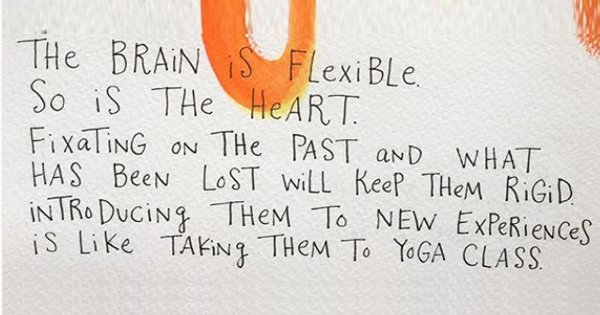 THe BRAiN iS FLexiBLe.
So iS THe HeART.
FixaTiNG oN THe PAST aND WHAT
HAS BeeN LoST WiLL KeeP THeM RiGiD.
iNTRoDuciNg THeM To NEW ExPeRieNCeS
iS LiKe TAKiNg THeM To YoGA CLASS.